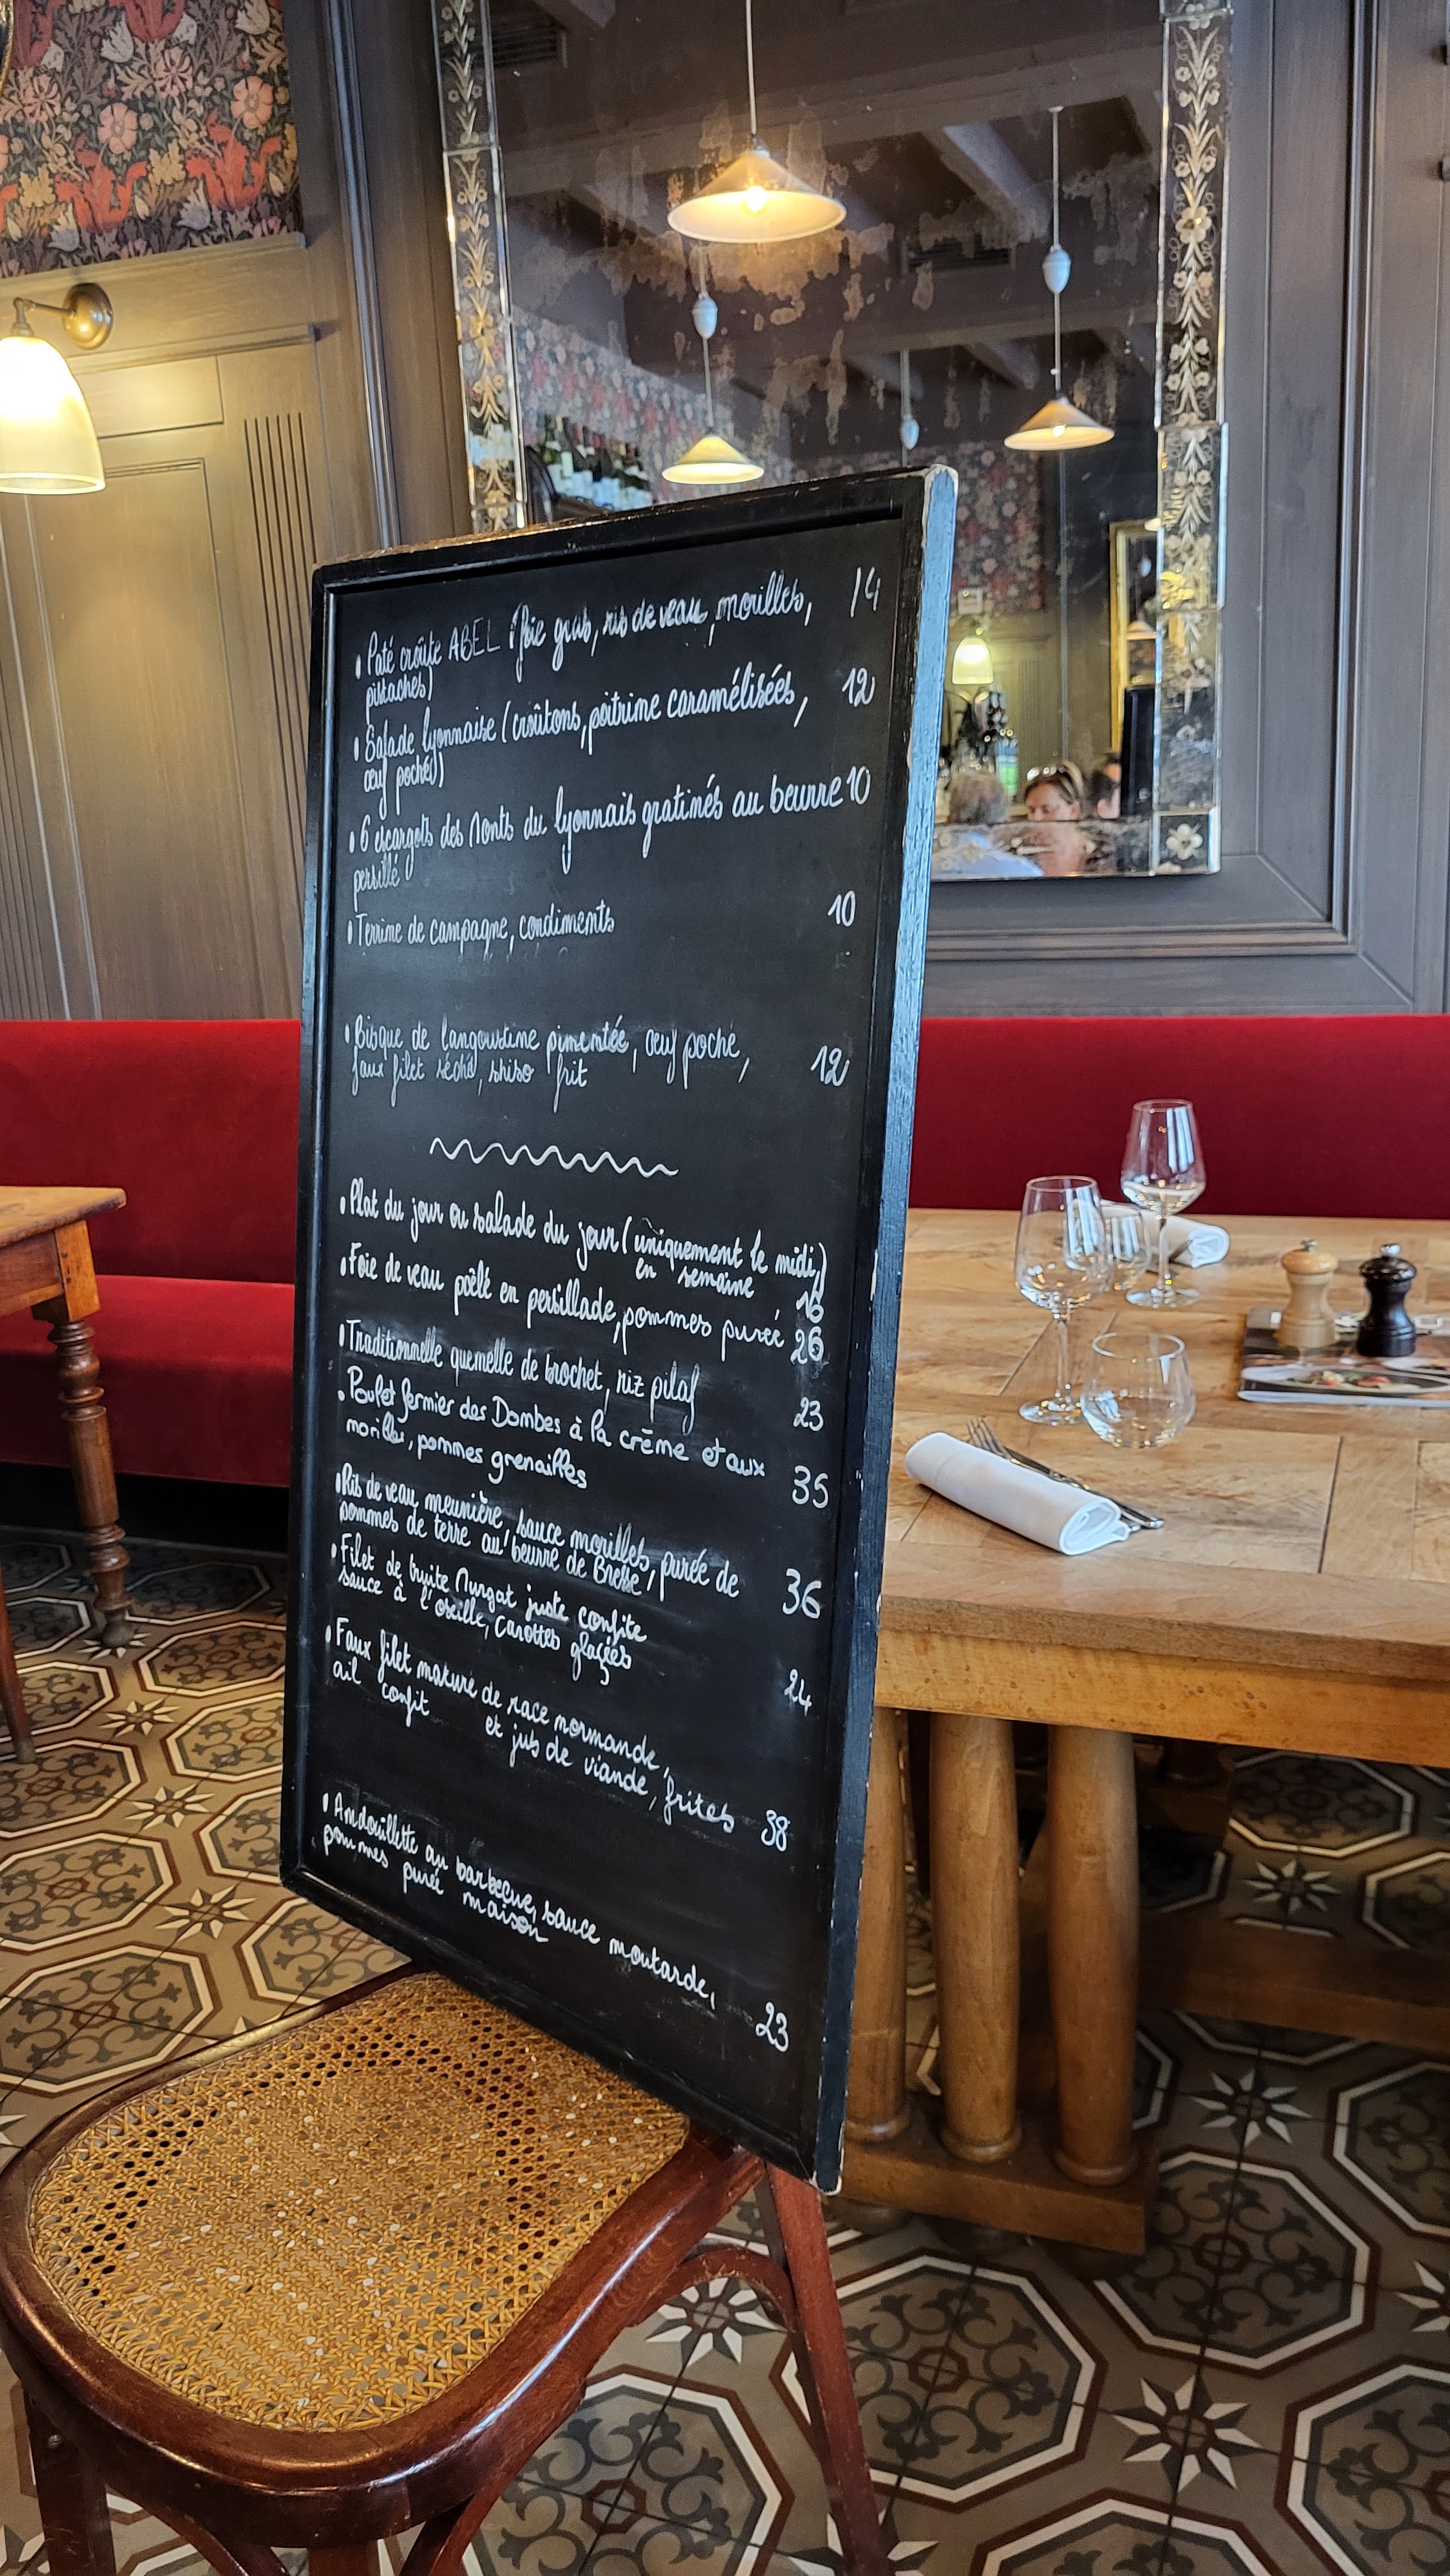 Paté croûte ABEL (foie gras, ris de veau, morilles, 14
pistaches)
Salade lyonnaise (croûtons, poitrine caramélisées, 12
œuf poché)
6 escargots des Monts du lyonnais gratinés au beurre 10
persillé
Terrine de campagne, condiments 10
Bisque de langoustine pimentée, œuf poché, 12
faux filet séché, shiso frit
Plat du jour ou salade du jour (uniquement le midi)
en semaine 16
Foie de veau poêlé en persillade, pommes purée 26
Traditionnelle quenelle de brochet, riz pilaf 23
Poulet fermier des Dombes à la crème et aux 35
morilles, pommes grenailles
Ris de veau meunière, sauce morilles, purée de 36
pommes de terre au beurre de Bresse,
Filet de truite Murgat juste confite
sauce à l'oseille, carottes glaçées 24
Faux filet mature de race normande,
ail confit et jus de viande, frites 38
Andouillette au barbecue, sauce moutarde, 23
pommes purée maison